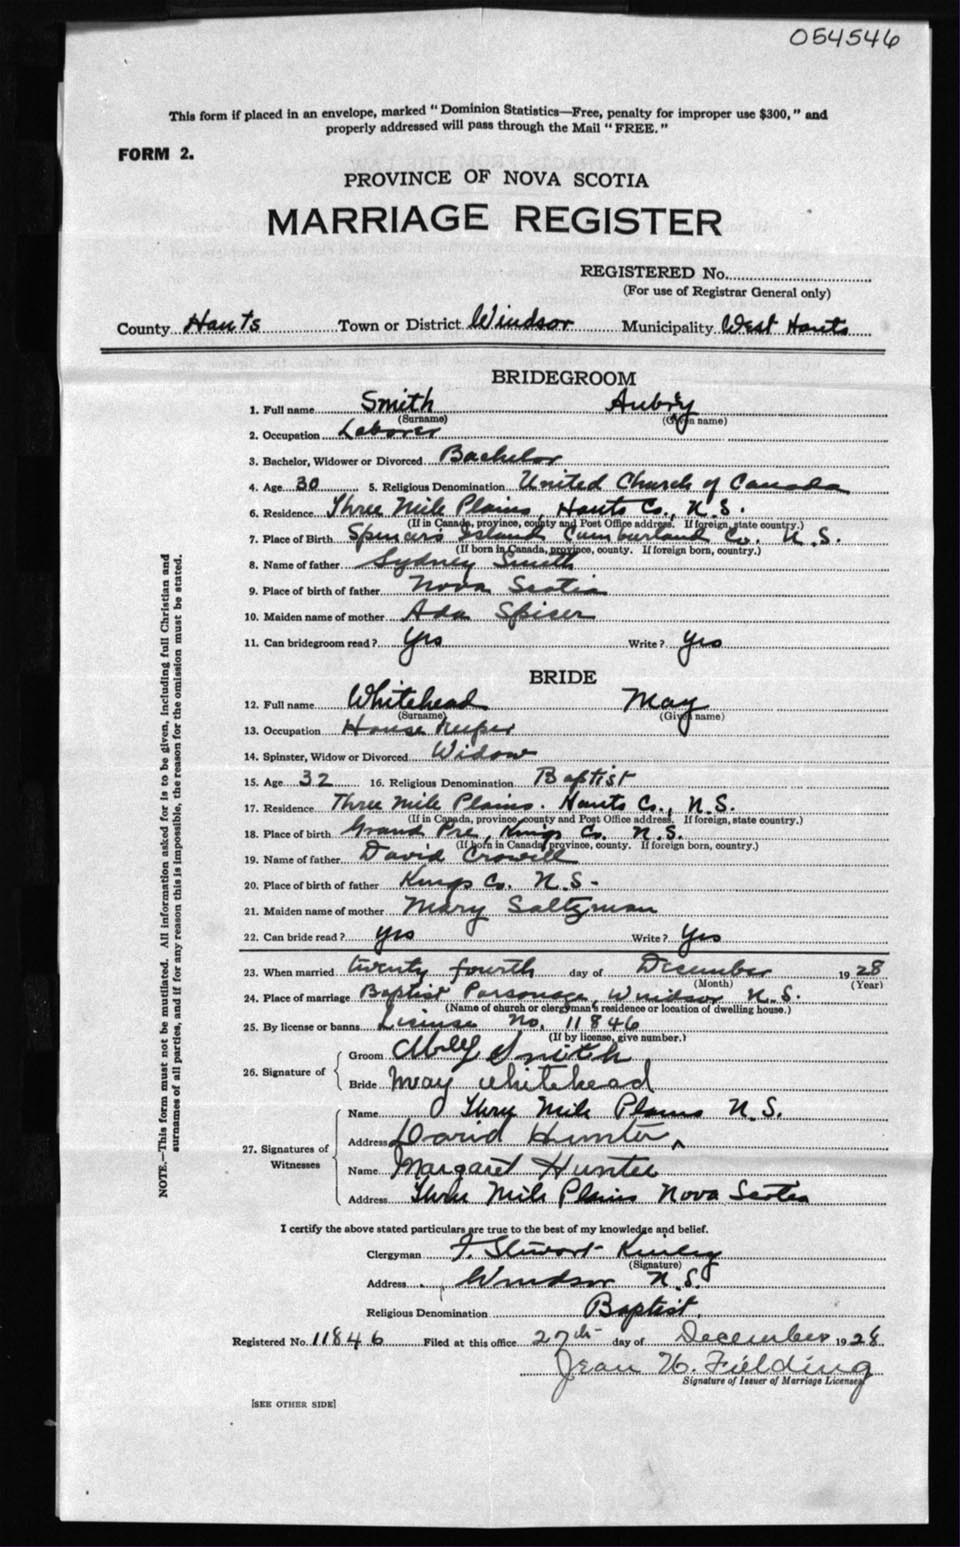 054546
This form if placed in an envelope, marked "Dominion Statistics—Free, penalty for improper use $300," and
properly addressed will pass through the Mail "FREE."
FORM 2.
PROVINCE OF NOVA SCOTIA
MARRIAGE REGISTER
REGISTERED No.
(For use of Registrar General only)
County Hants Town or District Windsor Municipality West Hants
BRIDEGROOM
1. Full name Smith Aubry
(Surname) (Given name)
2. Occupation Laborer
3. Bachelor, Widower or Divorced Bachelor
4. Age 30 5. Religious Denomination United Church of Canada
6. Residence Three Mile Plains, Hants Co., N.S.
(If in Canada, province, county and Post Office address. If foreign, state country.)
7. Place of Birth Spencers Island Cumberland Co. N.S.
(If born in Canada, province, county. If foreign born, country.)
8. Name of father Sydney Smith
9. Place of birth of father Nova Scotia
10. Maiden name of mother Ada Spicer
11. Can bridegroom read? Yes Write? Yes
BRIDE
12. Full name Whitehead May
(Surname) (Given name)
13. Occupation House Keeper
14. Spinster, Widow or Divorced Widow
15. Age 32 16. Religious Denomination Baptist
17. Residence Three Mile Plains. Hants Co., N.S.
(If in Canada, province, county and Post Office address. If foreign, state country.)
18. Place of birth Grand Pre, Kings Co. N.S.
(If born in Canada, province, county. If foreign born, country.)
19. Name of father David Crowell
20. Place of birth of father Kings Co. N.S.
21. Maiden name of mother Mary Saltzman
22. Can bride read? Yes Write? Yes
23. When married twenty fourth day of December 1928
(Month) (Year)
24. Place of marriage Baptist Parsonage, Windsor N.S.
(Name of church or clergyman's residence or location of dwelling house.)
25. By license or banns License No. 11846
(If by license, give number.)
26. Signature of
Groom Smith
Bride May Whitehead
27. Signatures of Witnesses
Name Three Mile Plains N.S.
Address David Hunter
Name Margaret Hunter
Address Three Mile Plains Nova Scotia
I certify the above stated particulars are true to the best of my knowledge and belief.
Clergyman F. Stewart Kinley
(Signature)
Address Windsor N.S.
Religious Denomination Baptist.
Registered No. 11846 Filed at this office 27th day of December 1928
Jean W. Fielding
Signature of Issuer of Marriage Licenses
[SEE OTHER SIDE]
NOTE.—This form must not be mutilated. All information asked for is to be given, including full Christian and
surnames of all parties, and if for any reason this is impossible, the reason for the omission must be stated.